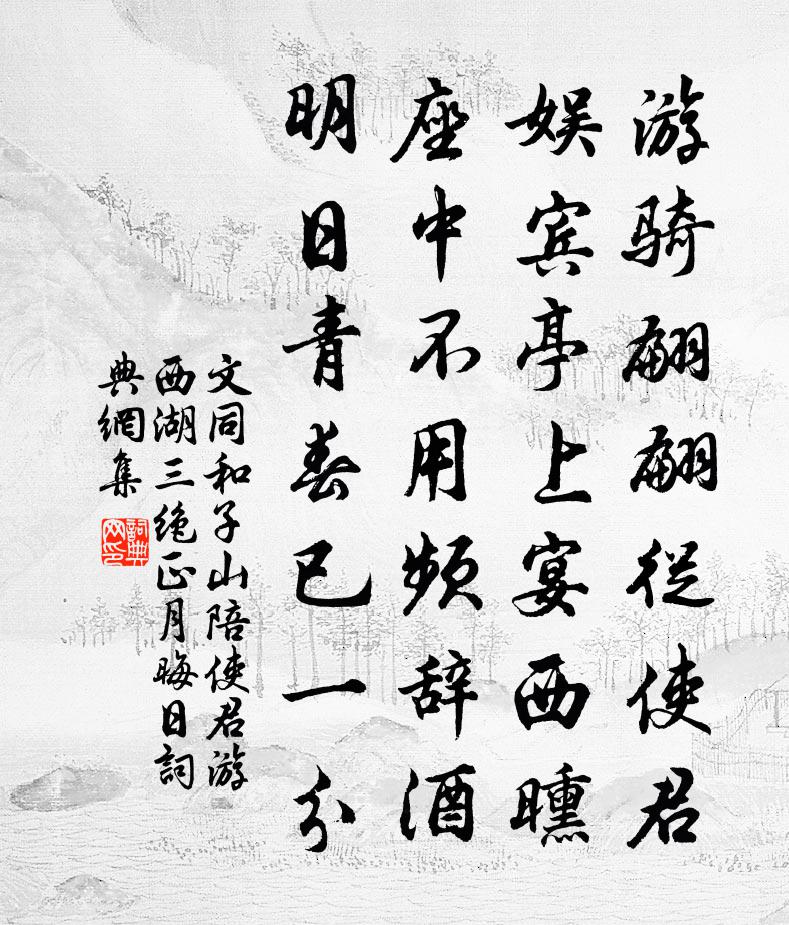 游骑翩翩从使君
娱宾亭上宴西曛
座中不用频辞酒
明日青春已一分
文同和子山陪使君游
西湖三绝正月晦日詞
典網集
詞典
网印